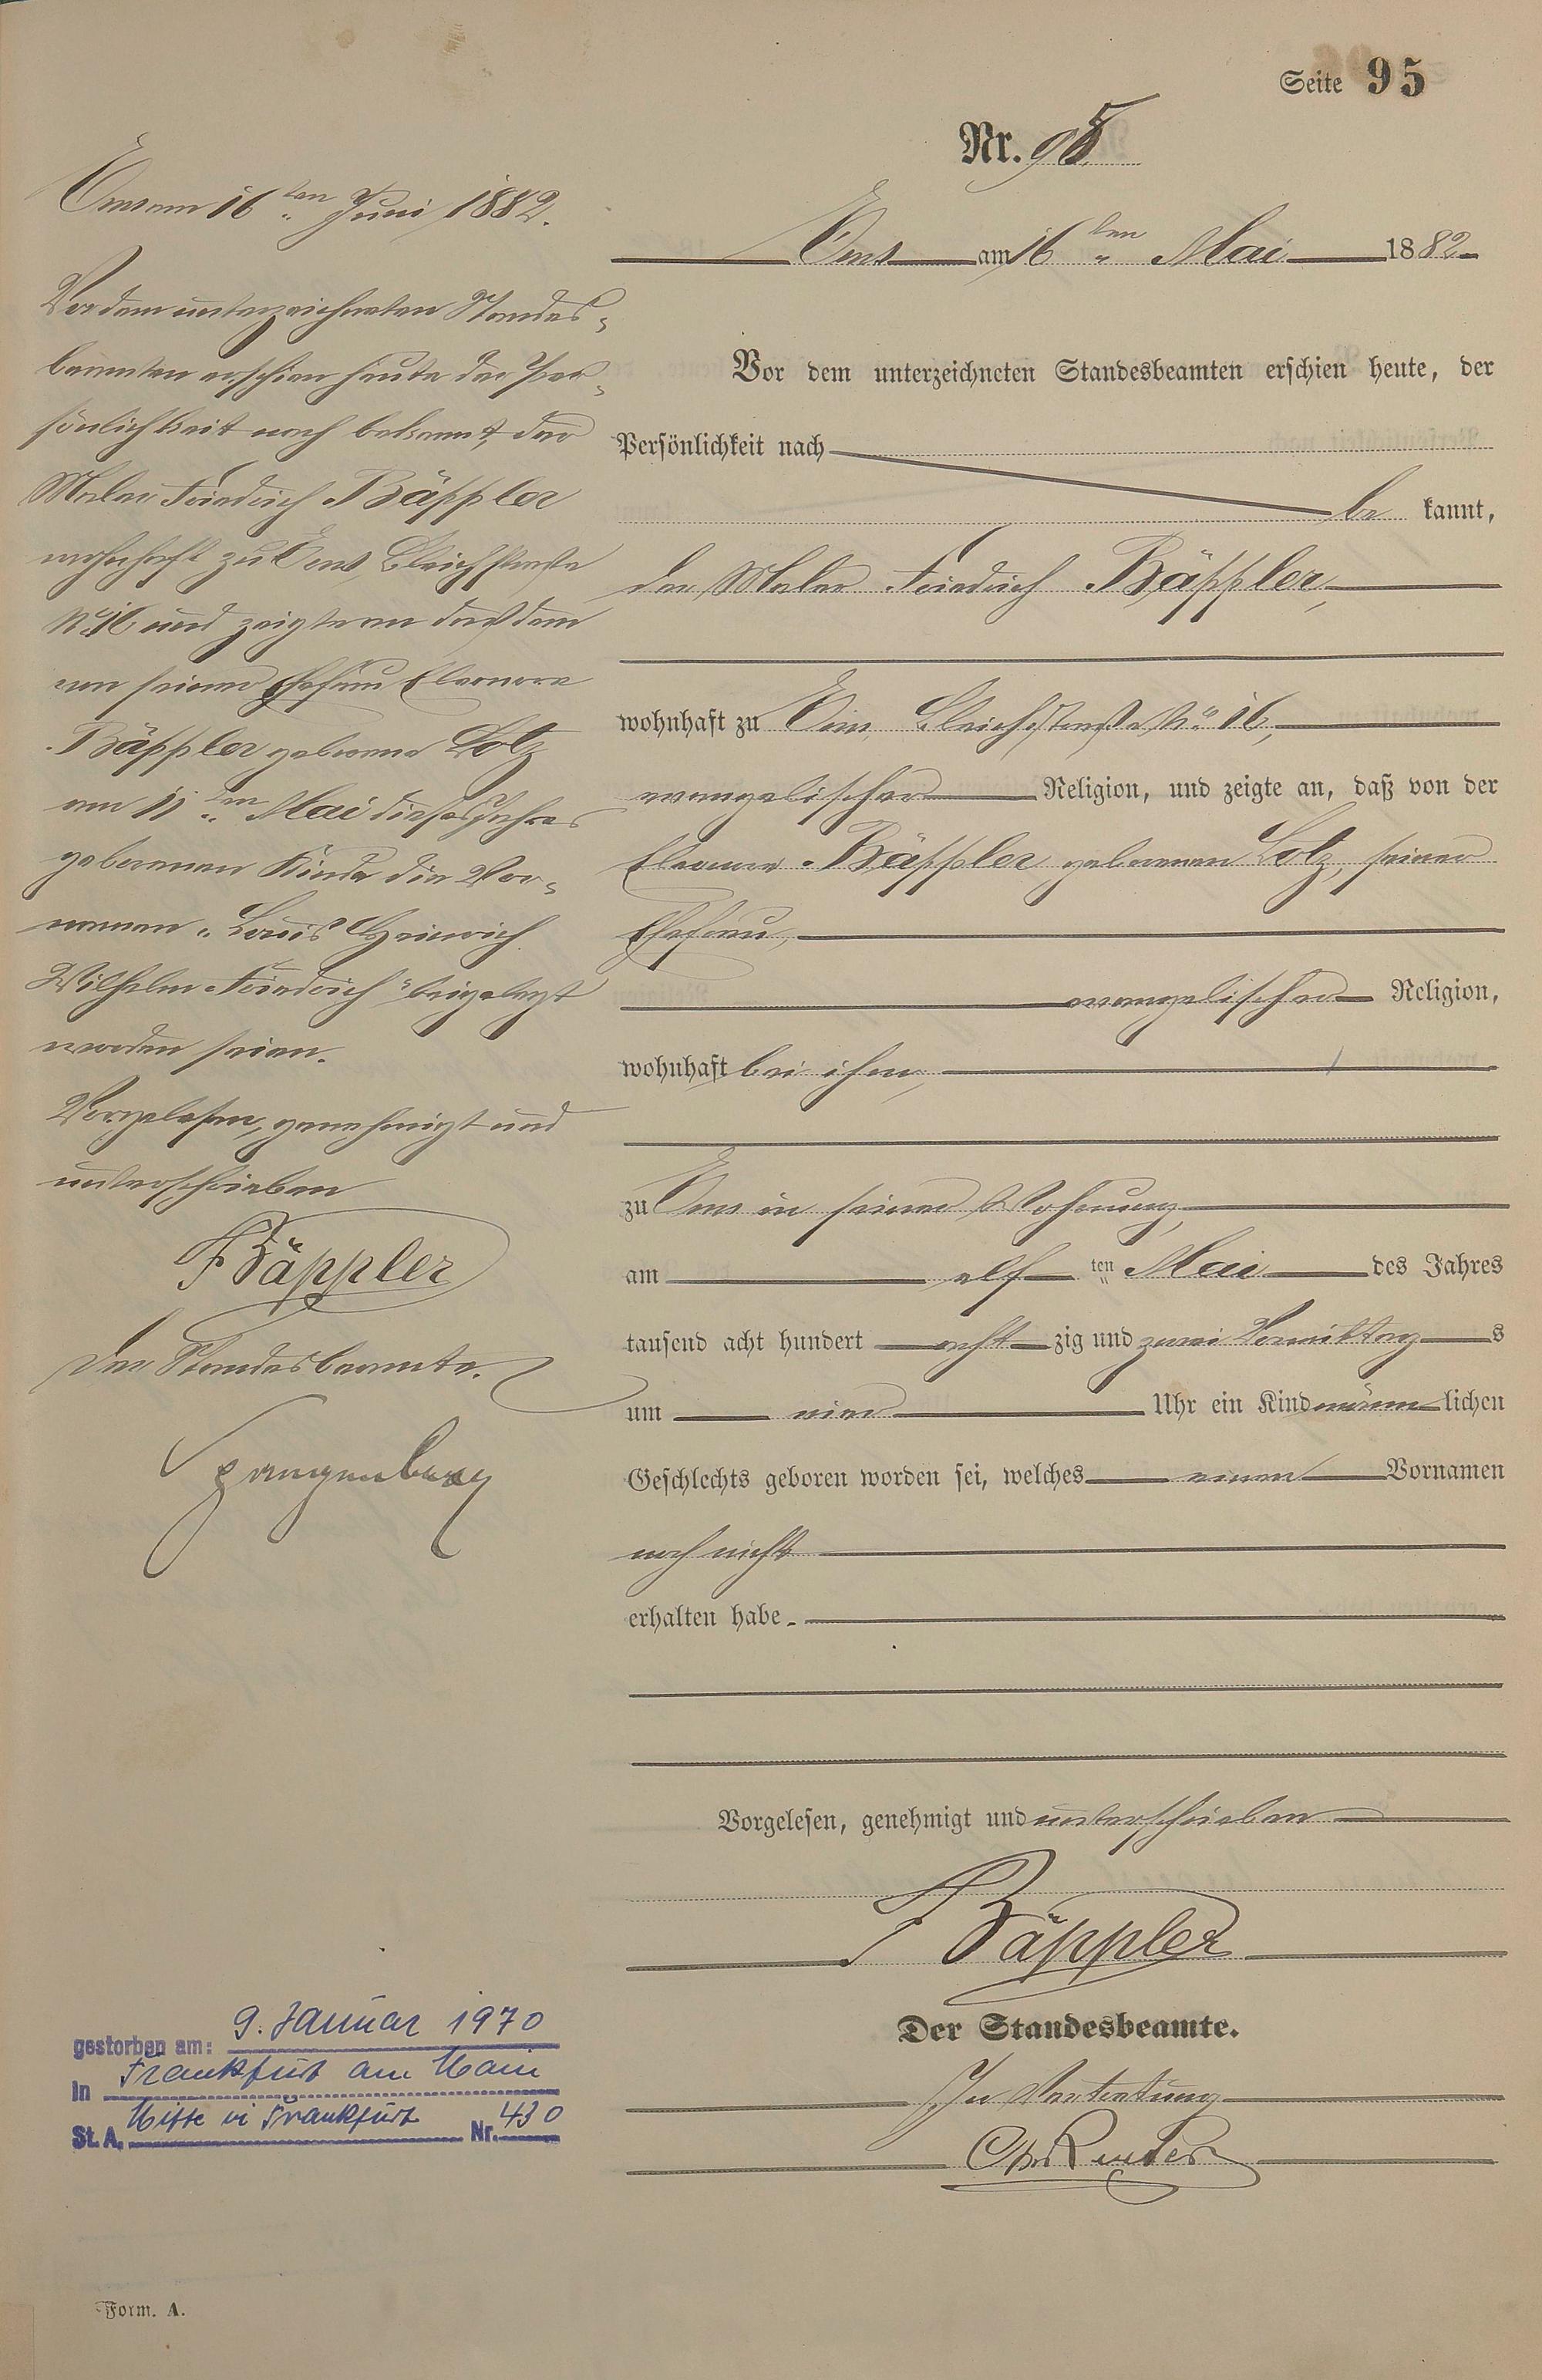 Seite 95
Nr. 95
Ems am 16ten Mai 1882
Vor dem unterzeichneten Standesbeamten erschien heute, der
Persönlichkeit nach
be kannt,
der Maler Friedrich Bäppler,
wohnhaft zu Ems, Bleichstraße No 16,
evangelischer Religion, und zeigte an, daß von der
Eleonore Bäppler geborenen Lotz, seiner
Ehefrau,
evangelischer Religion,
wohnhaft bei ihm,
zu Ems in seiner Wohnung,
am elf ten Mai des Jahres
tausend acht hundert acht zig und zwei Vormittag s
um vier Uhr ein Kind männ lichen
Geschlechts geboren worden sei, welches einen Vornamen
noch nicht
erhalten habe.
Vorgelesen, genehmigt und unterschrieben
F Bäppler
Der Standesbeamte.
In Vertretung
Ems am 16ten Juni 1882.
Vor dem unterzeichneten Standes-
beamten erschien heute der Per-
sönlichkeit nach bekannt, der
Maler Friedrich Bäppler
wohnhaft zu Ems, Bleichstraße
No 16 und zeigte an daß dem
von seiner Ehefrau Eleonore
Bäppler geborene Lotz
am 11ten Mai dieses Jahres
geborenen Kinde die Vor-
namen "Louis Heinrich
Wilhelm Friedrich" beigelegt
worden seien.
Vorgelesen, genehmigt und
unterschrieben
F Bäppler
Der Standesbeamte.
Spangenberg
gestorben am: 9. Januar 1970
in Frankfurt am Main
St. A. Mitte in Frankfurt Nr. 430
Form. A.